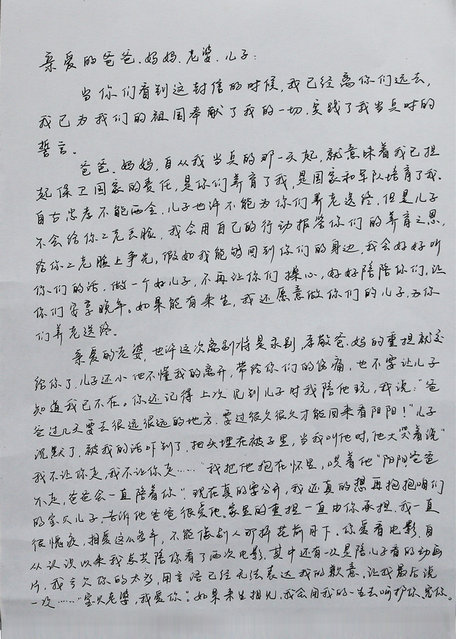 亲爱的爸爸、妈妈、老婆、儿子：
当你们看到这封信的时候，我已经离你们远去，
我已为我们的祖国奉献了我的一切，实践了我当兵时的
誓言。
爸爸、妈妈，自从我当兵的那一天起，就意味着我已担
起保卫国家的责任，是你们养育了我，是国家和军队培育了我。
自古忠孝不能两全，儿子也许不能为你们养老送终，但是儿子
不会给你二老丢脸，我会用自己的行动报答你们的养育之恩，
给你二老脸上争光，假如我能够回到你们的身边，我会好好听
你们的话，做一个好儿子，不再让你们操心，好好陪陪你们，让
你们安享晚年。如果能有来生，我还愿意做你们的儿子，为你
们养老送终。
亲爱的老婆，也许这次离别将是永别，孝敬爸、妈的重担就交
给你了，儿子还小他不懂我的离开，带给你们的伤痛，也不要让儿子
知道我已不在。你还记得上次见到儿子时我陪他玩，我说：“爸
爸过几天要去很远很远的地方，要过很久很久才能回来看阳阳！”儿子
沉默了，被我的话吓到了，把头埋在被子里，当我叫他时，他大哭着说“
我不让你走，我不让你走……”我把他抱在怀里，哄着他“阳阳爸爸
不走，爸爸会一直陪着你”。现在真的要分开，我还真的想再抱抱咱们
的宝贝儿子，告诉他爸爸很爱他，家里的重担一直由你承担，我一直
很愧疚，相爱这么多年，不能像别人那样花前月下，你爱看电影，自
从认识以来我总共陪你看了两次电影，其中还有一次是陪儿子看的动画
片，我亏欠你的太多，用言语已经无法表达我的歉意，让我最后说
一次……“宝贝老婆，我爱你”。如果来生相见，我会用我的一生去呵护你、爱你。